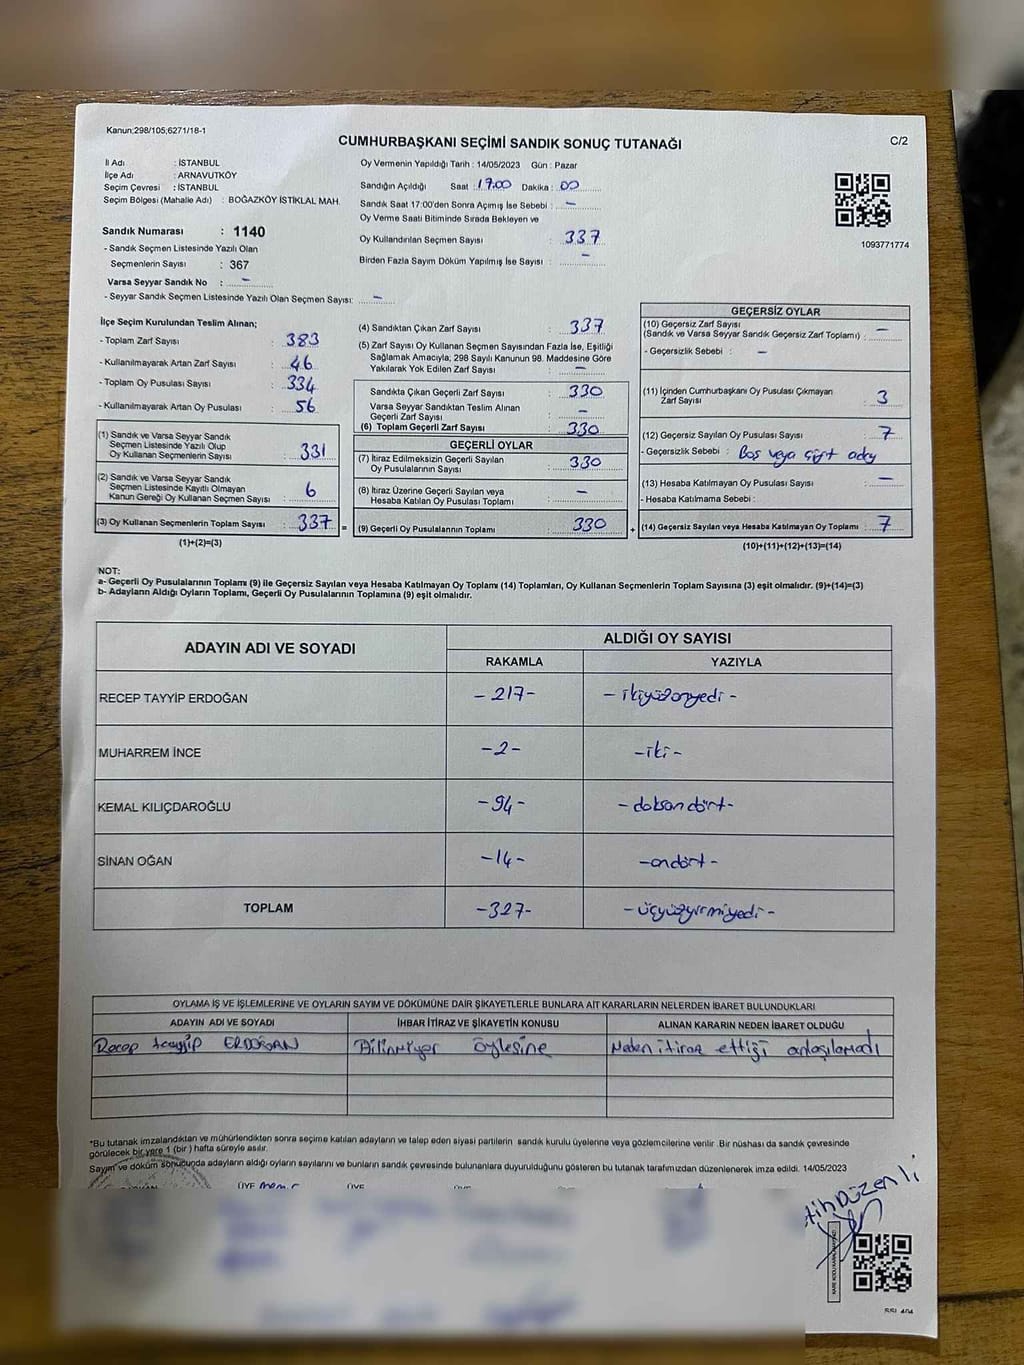 Kanun:298/105;6271/18-1
C/2
CUMHURBAŞKANI SEÇİMİ SANDIK SONUÇ TUTANAĞI
İl Adı : İSTANBUL
İlçe Adı : ARNAVUTKÖY
Seçim Çevresi : İSTANBUL
Seçim Bölgesi (Mahalle Adı) : BOĞAZKÖY İSTİKLAL MAH.
Sandık Numarası : 1140
- Sandık Seçmen Listesinde Yazılı Olan
Seçmenlerin Sayısı : 367
Varsa Seyyar Sandık No : –
- Seyyar Sandık Seçmen Listesinde Yazılı Olan Seçmen Sayısı: –
Oy Vermenin Yapıldığı Tarih : 14/05/2023 Gün : Pazar
Sandığın Açıldığı Saat : 17.00 Dakika : 00
Sandık Saat 17:00'den Sonra Açımış İse Sebebi : –
Oy Verme Saati Bitiminde Sırada Bekleyen ve
Oy Kullandırılan Seçmen Sayısı : 337
Birden Fazla Sayım Döküm Yapılmış İse Sayısı : –
1093771774
İlçe Seçim Kurulundan Teslim Alınan;
- Toplam Zarf Sayısı : 383
- Kullanılmayarak Artan Zarf Sayısı : 46
- Toplam Oy Pusulası Sayısı : 334
- Kullanılmayarak Artan Oy Pusulası : 56
(1) Sandık ve Varsa Seyyar Sandık
Seçmen Listesinde Yazılı Olup
Oy Kullanan Seçmenlerin Sayısı : 331
(2) Sandık ve Varsa Seyyar Sandık
Seçmen Listesinde Kayıtlı Olmayan
Kanun Gereği Oy Kullanan Seçmen Sayısı : 6
(3) Oy Kullanan Seçmenlerin Toplam Sayısı : 337 =
(1)+(2)=(3)
(4) Sandıktan Çıkan Zarf Sayısı : 337
(5) Zarf Sayısı Oy Kullanan Seçmen Sayısından Fazla İse, Eşitliği
Sağlamak Amacıyla; 298 Sayılı Kanunun 98. Maddesine Göre
Yakılarak Yok Edilen Zarf Sayısı : –
Sandıkta Çıkan Geçerli Zarf Sayısı : 330
Varsa Seyyar Sandıktan Teslim Alınan
Geçerli Zarf Sayısı : –
(6) Toplam Geçerli Zarf Sayısı : 330
GEÇERLİ OYLAR
(7) İtiraz Edilmeksizin Geçerli Sayılan
Oy Pusulalarının Sayısı : 330
(8) İtiraz Üzerine Geçerli Sayılan veya
Hesaba Katılan Oy Pusulaları Toplamı : –
(9) Geçerli Oy Pusulalarının Toplamı : 330 +
GEÇERSİZ OYLAR
(10) Geçersiz Zarf Sayısı
(Sandık ve Varsa Seyyar Sandık Geçersiz Zarf Toplamı) : –
- Geçersizlik Sebebi : –
(11) İçinden Cumhurbaşkanı Oy Pusulası Çıkmayan
Zarf Sayısı : 3
(12) Geçersiz Sayılan Oy Pusulası Sayısı : 7
- Geçersizlik Sebebi : Boş veya çift aday
(13) Hesaba Katılmayan Oy Pusulası Sayısı : –
- Hesaba Katılmama Sebebi :
(14) Geçersiz Sayılan veya Hesaba Katılmayan Oy Toplamı : 7
(10)+(11)+(12)+(13)=(14)
NOT:
a- Geçerli Oy Pusulalarının Toplamı (9) ile Geçersiz Sayılan veya Hesaba Katılmayan Oy Toplamı (14) Toplamları, Oy Kullanan Seçmenlerin Toplam Sayısına (3) eşit olmalıdır. (9)+(14)=(3)
b- Adayların Aldığı Oyların Toplamı, Geçerli Oy Pusulalarının Toplamına (9) eşit olmalıdır.
ADAYIN ADI VE SOYADI
ALDIĞI OY SAYISI
RAKAMLA YAZIYLA
RECEP TAYYİP ERDOĞAN -217- - ikiyüzonyedi -
MUHARREM İNCE -2- -iki-
KEMAL KILIÇDAROĞLU -94- - doksan dört-
SİNAN OĞAN -14- -ondört-
TOPLAM -327- -üçyüzyirmiyedi-
OYLAMA İŞ VE İŞLEMLERİNE VE OYLARIN SAYIM VE DÖKÜMÜNE DAİR ŞİKAYETLERLE BUNLARA AİT KARARLARIN NELERDEN İBARET BULUNDUKLARI
ADAYIN ADI VE SOYADI İHBAR İTİRAZ VE ŞİKAYETİN KONUSU ALINAN KARARIN NEDEN İBARET OLDUĞU
Recep tayyip ERDOĞAN Bilinmiyor öylesine Neden itiraz ettiği anlaşılamadı
*Bu tutanak imzalandıktan ve mühürlendikten sonra seçime katılan adayların ve talep eden siyasi partilerin sandık kurulu üyelerine veya gözlemcilerine verilir .Bir nüshası da sandık çevresinde
görülecek bir yere 1 (bir ) hafta süreyle asılır.
Sayım ve döküm sonucunda adayların aldığı oyların sayılarını ve bunların sandık çevresinde bulunanlara duyurulduğunu gösteren bu tutanak tarafımızdan düzenlenerek imza edildi. 14/05/2023
ÜYE ÜYE
Düzenli